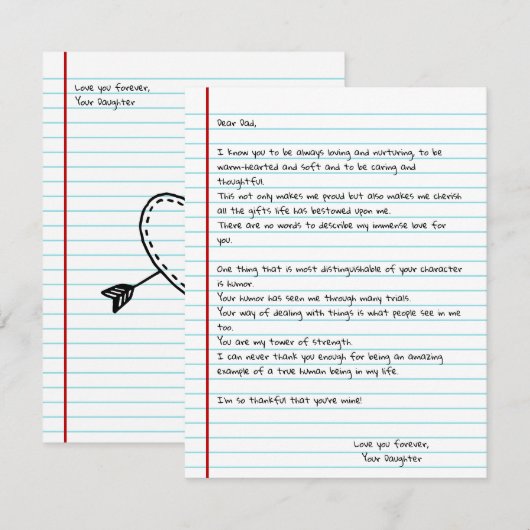 Love you forever,
Your Daughter
Dear Dad,
I know you to be always loving and nurturing, to be
warm-hearted and soft and to be caring and
thoughtful.
This not only makes me proud but also makes me cherish
all the gifts life has bestowed upon me.
There are no words to describe my immense love for
you.
One thing that is most distinguishable of your character
is humor.
Your humor has seen me through many trials.
Your way of dealing with things is what people see in me
too.
You are my tower of strength.
I can never thank you enough for being an amazing
example of a true human being in my life.
I'm so thankful that you're mine!
Love you forever,
Your Daughter